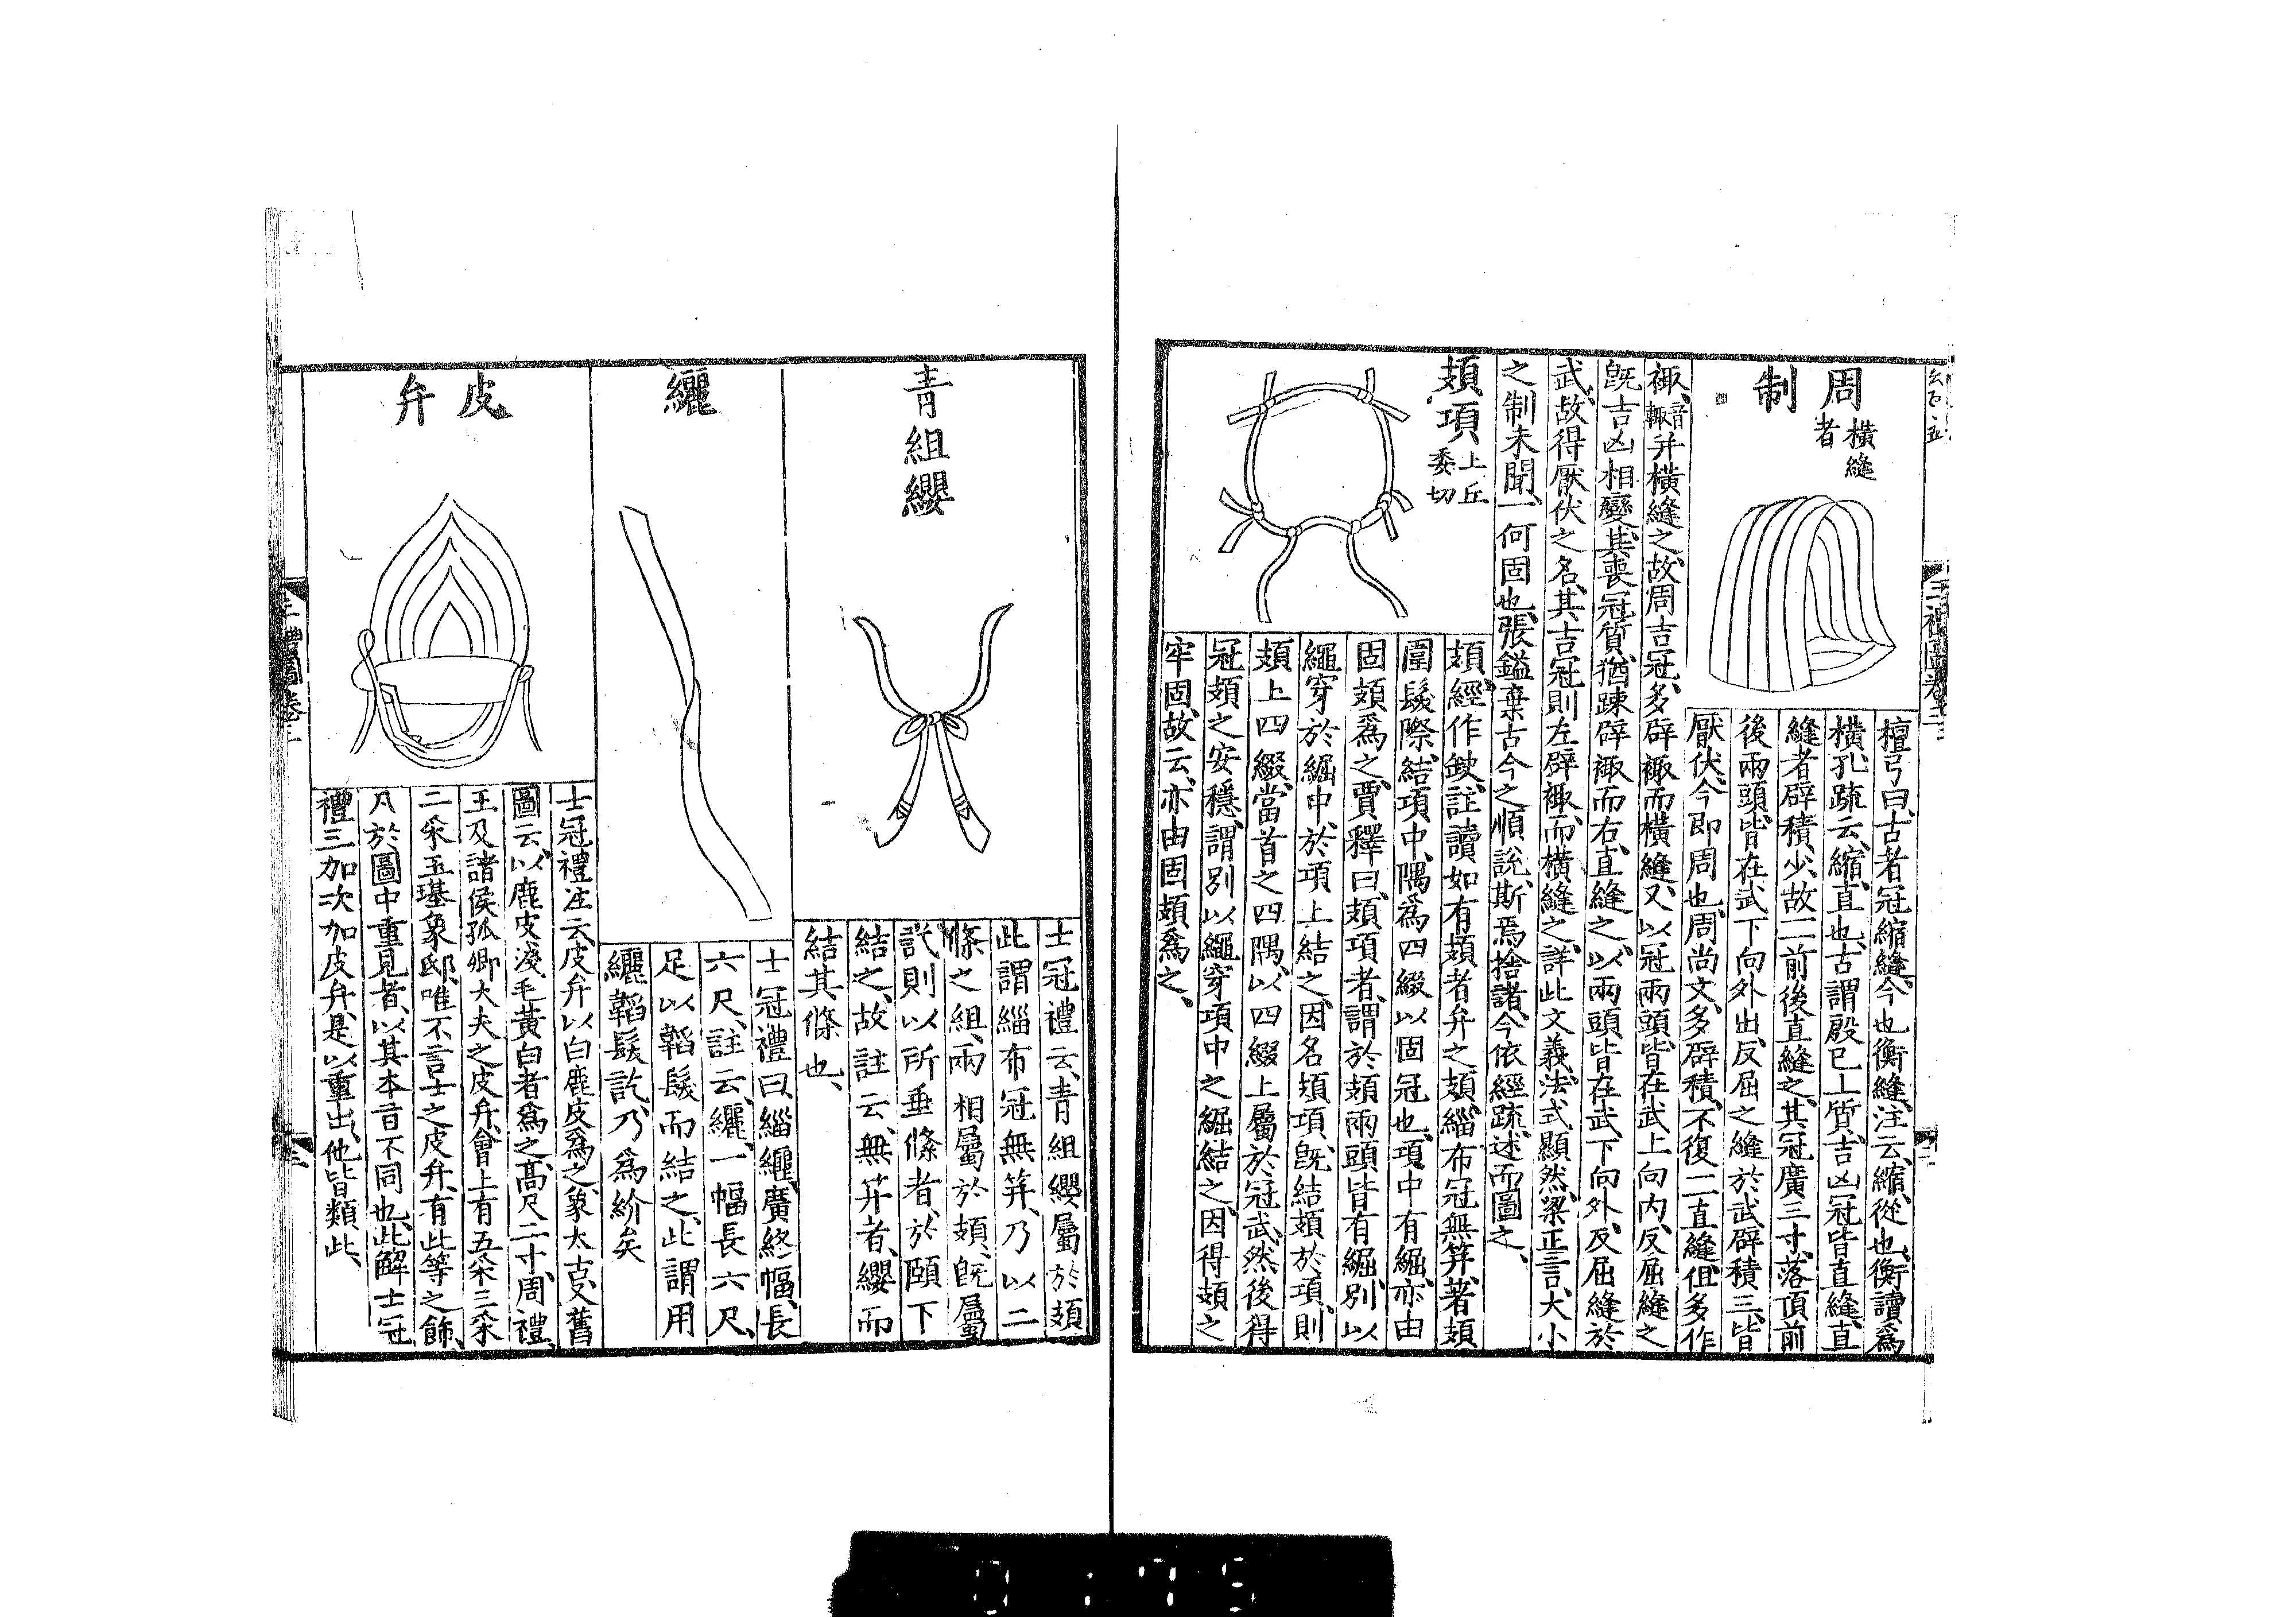 周制
橫縫
者
檀弓曰、古者冠縮縫、今也衡縫、注云、縮、從也、衡讀爲
橫、孔疏云、縮、直也、古謂殷已上質、吉凶冠皆直縫、直
縫者辟積少、故一一前後直縫之、其冠廣三寸、落頂前
後兩頭、皆在武下向外出、反屈之縫於武、辟積三、皆
厭伏、今即周也、周尚文、多辟積、不復一一直縫、但多作
襵、音輒并橫縫之、故周吉冠、多辟襵而橫縫、又以冠兩頭、皆在武上向內、反屈縫之
旣吉凶相變、其喪冠質、猶踈辟襵而右、直縫之、以兩頭皆在武下向外、反屈縫於
武、故得厭伏之名、其吉冠則左辟襵、而橫縫之、詳此文義、法式顯然、梁正言、大小
之制未聞、一何固也、張鎰棄古今之順說、斯焉捨諸、今依經疏、述而圖之、
頍項
上丘
委切
頍、經作缺、註讀如有頍者弁之頍、緇布冠無笄、著頍
圍髮際、結項中、隅爲四綴以固冠也、項中有䋿、亦由
固頍爲之、賈釋曰、頍項者、謂於頍兩頭皆有䋿、別以
繩穿於䋿中、於項上結之、因名頍項、旣結頍於項、則
頍上四綴、當首之四隅、以四綴上屬於冠武、然後得
冠頍之安穩、謂別以繩穿項中之䋿結之、因得頍之
牢固、故云、亦由固頍爲之、
青組纓
士冠禮云、青組纓屬於頍
此謂緇布冠無笄、乃以二
絛之組、兩相屬於頍、旣屬
訖則以所垂絛者、於頤下
結之、故註云、無笄者、纓而
結其絛也、
纚
士冠禮曰、緇纚、廣終幅、長
六尺、註云、纚、一幅長六尺、
足以韜髮而結之、此謂用
纚韜髮訖、乃爲紒矣
皮弁
士冠禮注云、皮弁以白鹿皮爲之、象太古、又舊
圖云、以鹿皮淺毛黃白者爲之、高尺二寸、周禮、
王及諸侯孤卿大夫之皮弁、會上有五采三采
二采玉璂象邸、唯不言士之皮弁、有此等之飾、
凡於圖中重見者、以其本旨不同也、此解士冠
禮三加次加皮弁、是以重出、他皆類此、
三禮圖卷三